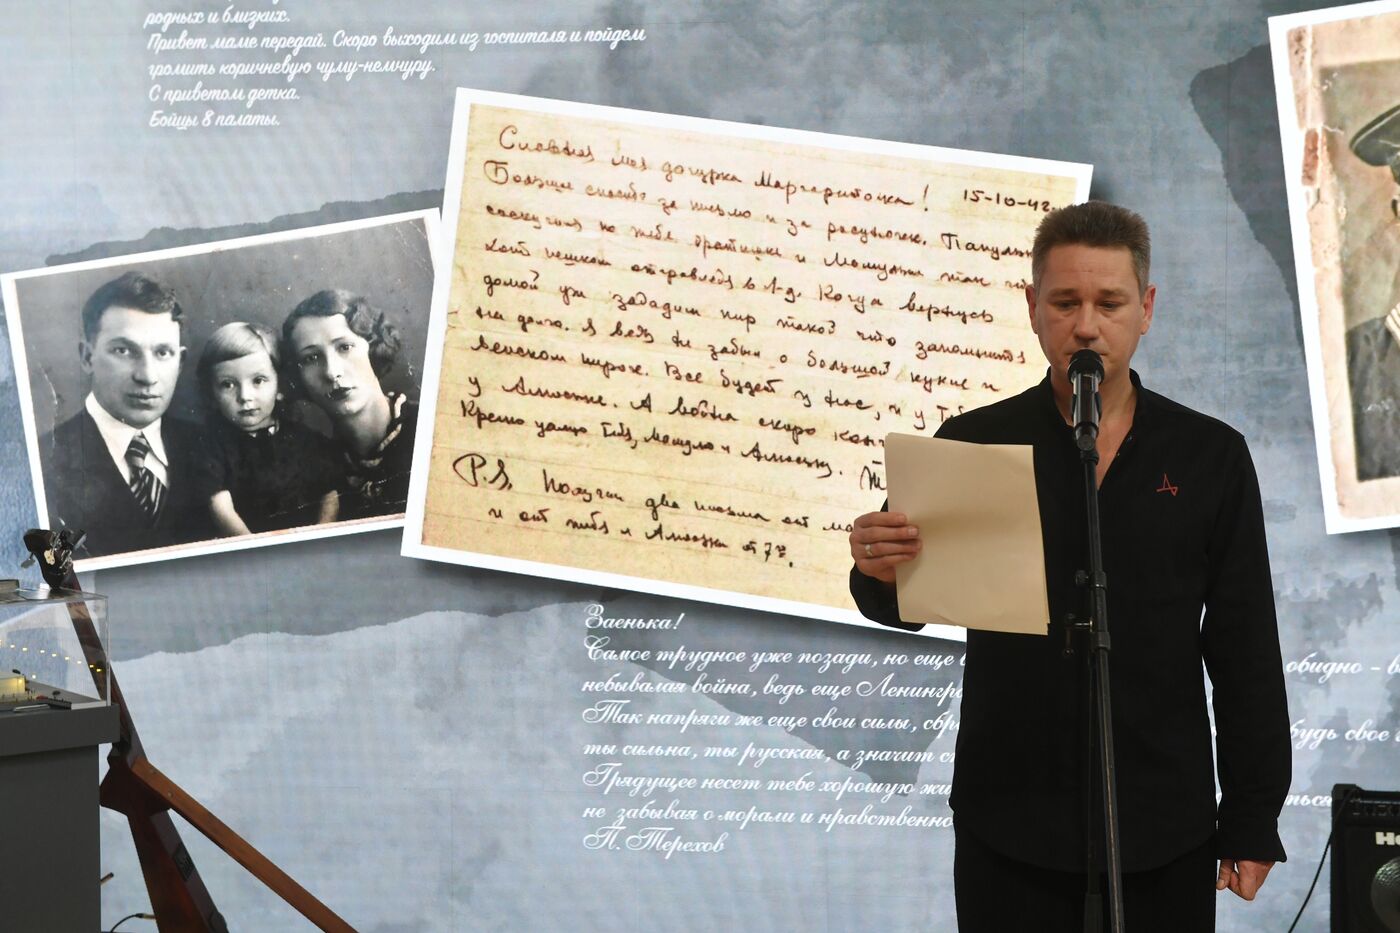 родных и близких.
Привет маме передай. Скоро выходим из госпиталя и пойдем
громить коричневую чуму-немчуру.
С приветом детка.
Бойцы 8 палаты.
Славная моя дочурка Маргариточка! 15-10-42
Большое спасибо за письмо и за рисуночек. Папулька
соскучился по тебе братишке и Мамульке так что
хоть пешком отправляйся в Л-д. Когда вернусь
домой уж зададим пир такой что запомнится
на долго. Я ведь не забыл о большой кукле и
венском пироге. Все будет у нас, и у тебя
у Алюськи. А война скоро
Крепко целую тебя, Мамулю и Алюську.
P.S. Получил два письма от
и от тебя и Алюськи от 7го.
Заенька!
Самое трудное уже позади, но еще
небывалая война, ведь еще
Так напряги же еще свои силы,
ты сильна, ты русская, а значит
Грядущее несет тебе хорошую
не забывая о морали и
П. Терехов
обидно -
будь свое